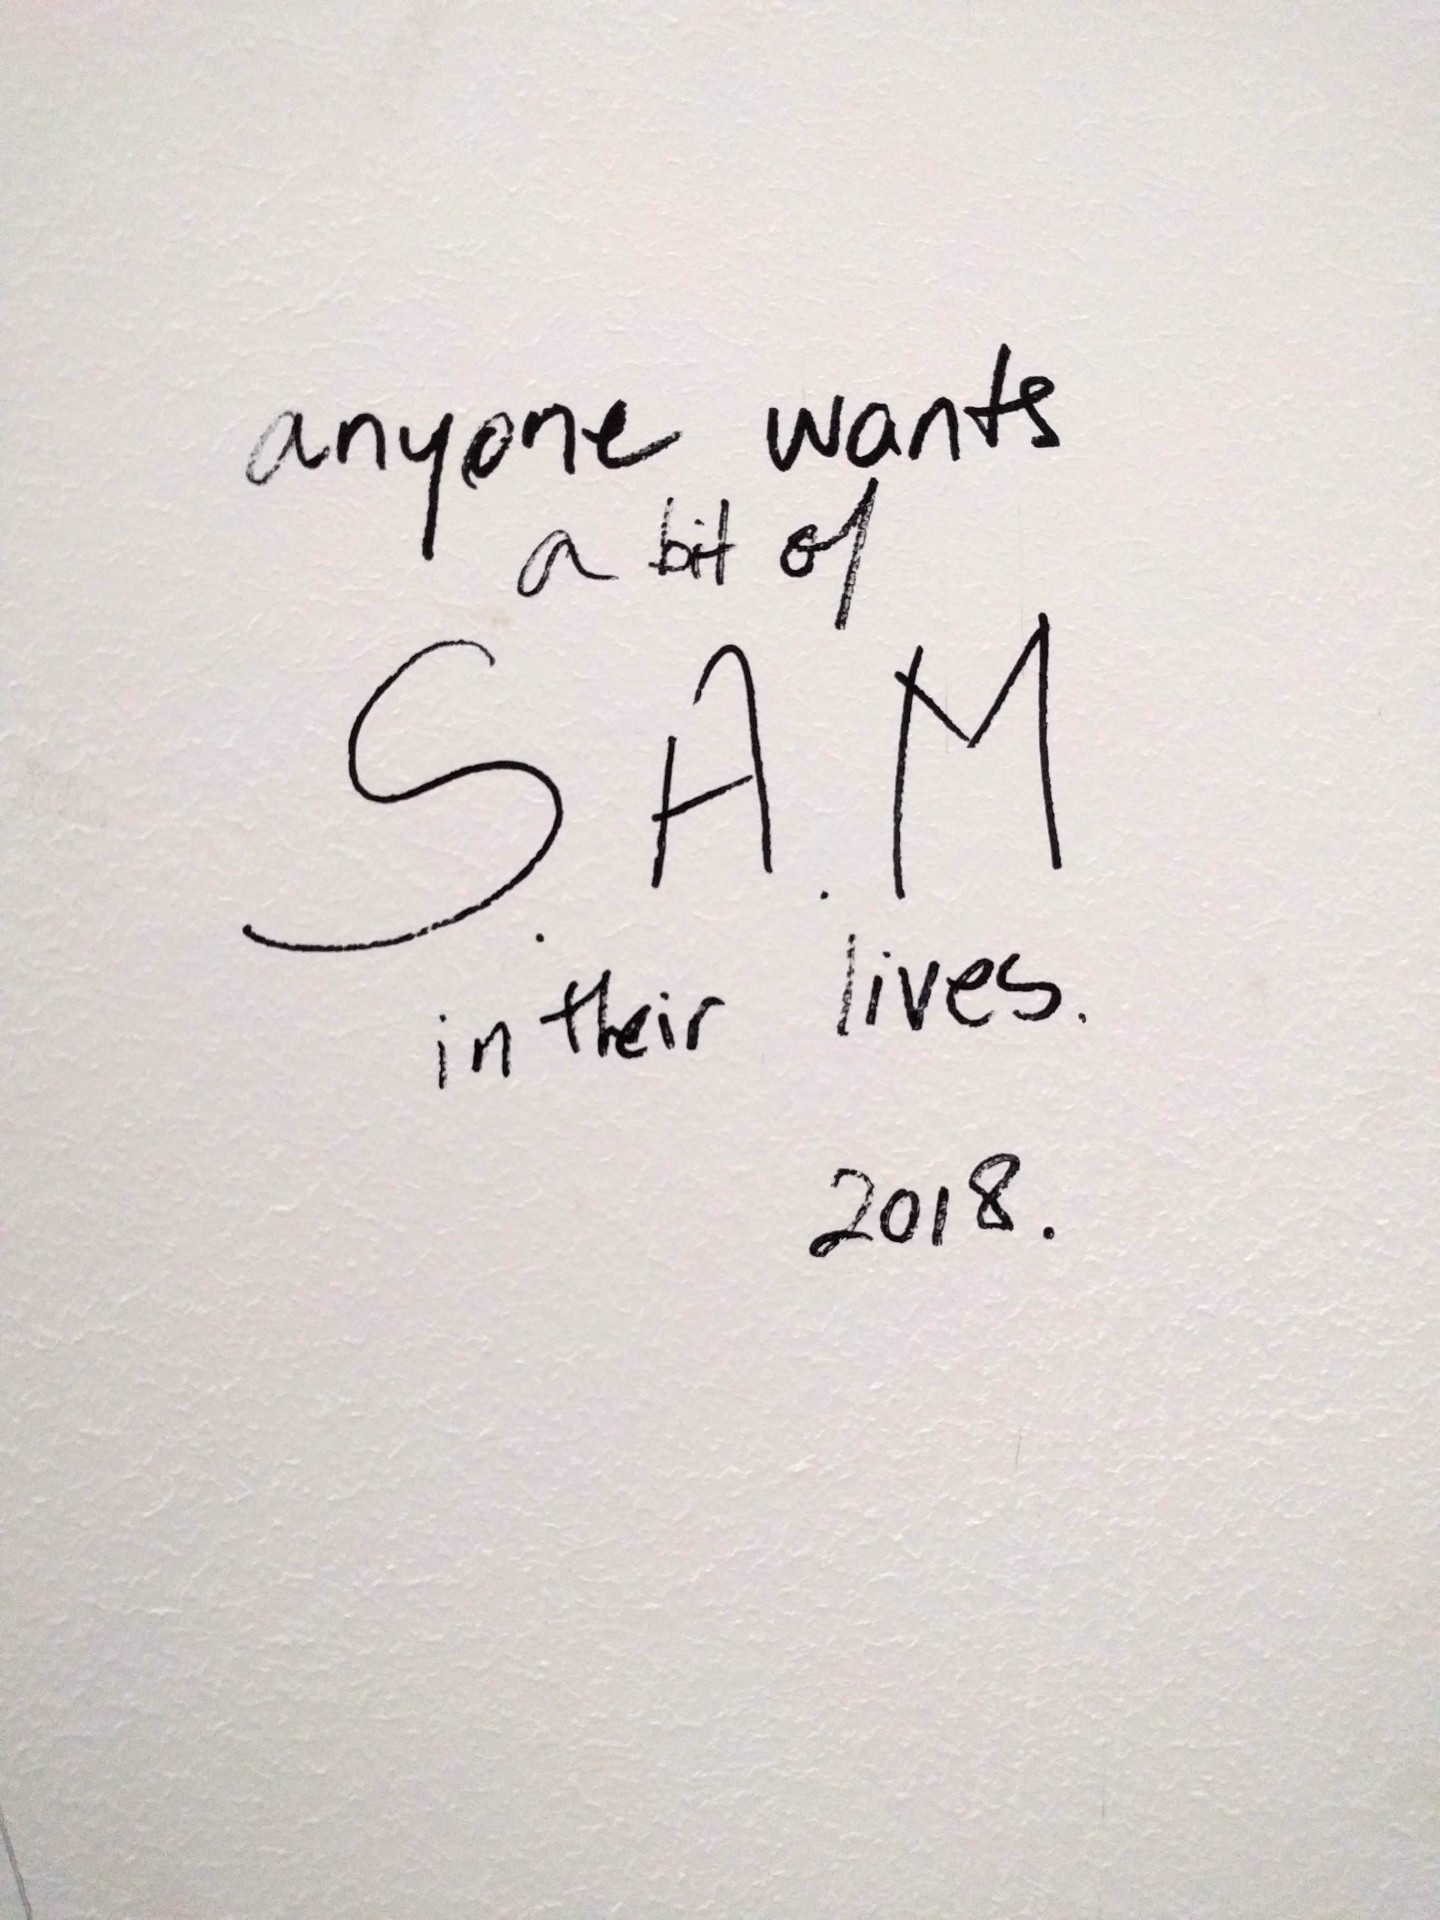 anyone wants
a bit of
S.A.M
in their lives.
2018.